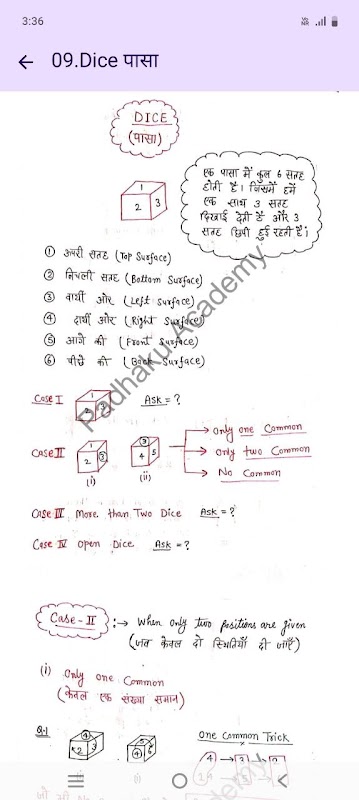 3:36
09.Dice पासा
DICE
(पासा)
एक पासा में कुल 6 सतह
होती हैं। जिसमें हमें
एक साथ 3 सतह
दिखाई देती हैं और 3
सतह छिपी हुई रहती हैं।
1
2 3
① ऊपरी सतह (Top Surface)
② निचली सतह (Bottom Surface)
③ बायीं ओर (Left Surface)
④ दायीं ओर (Right Surface)
⑤ आगे की (Front Surface)
⑥ पीछे की (Back Surface)
Padhaku Academy
Case I
1
Ask = ?
Case II
1
2 3
(i)
3
4 5
(ii)
Only one Common
Only two Common
No Common
Case III More than Two Dice Ask = ?
Case IV Open Dice Ask = ?
Case - II :→ When only two positions are given
(जब केवल दो स्थितियाँ दी जाएँ)
(i) Only one Common
(केवल एक संख्या समान)
Q.1
4
2 3
5
4 6
One Common Trick
4 → 3 → 2